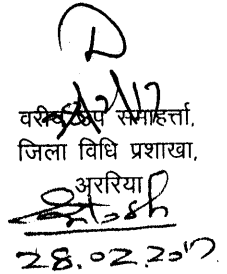 D
वरीय उप समाहर्त्ता,
जिला विधि प्रशाखा,
अररिया
28.02.2017